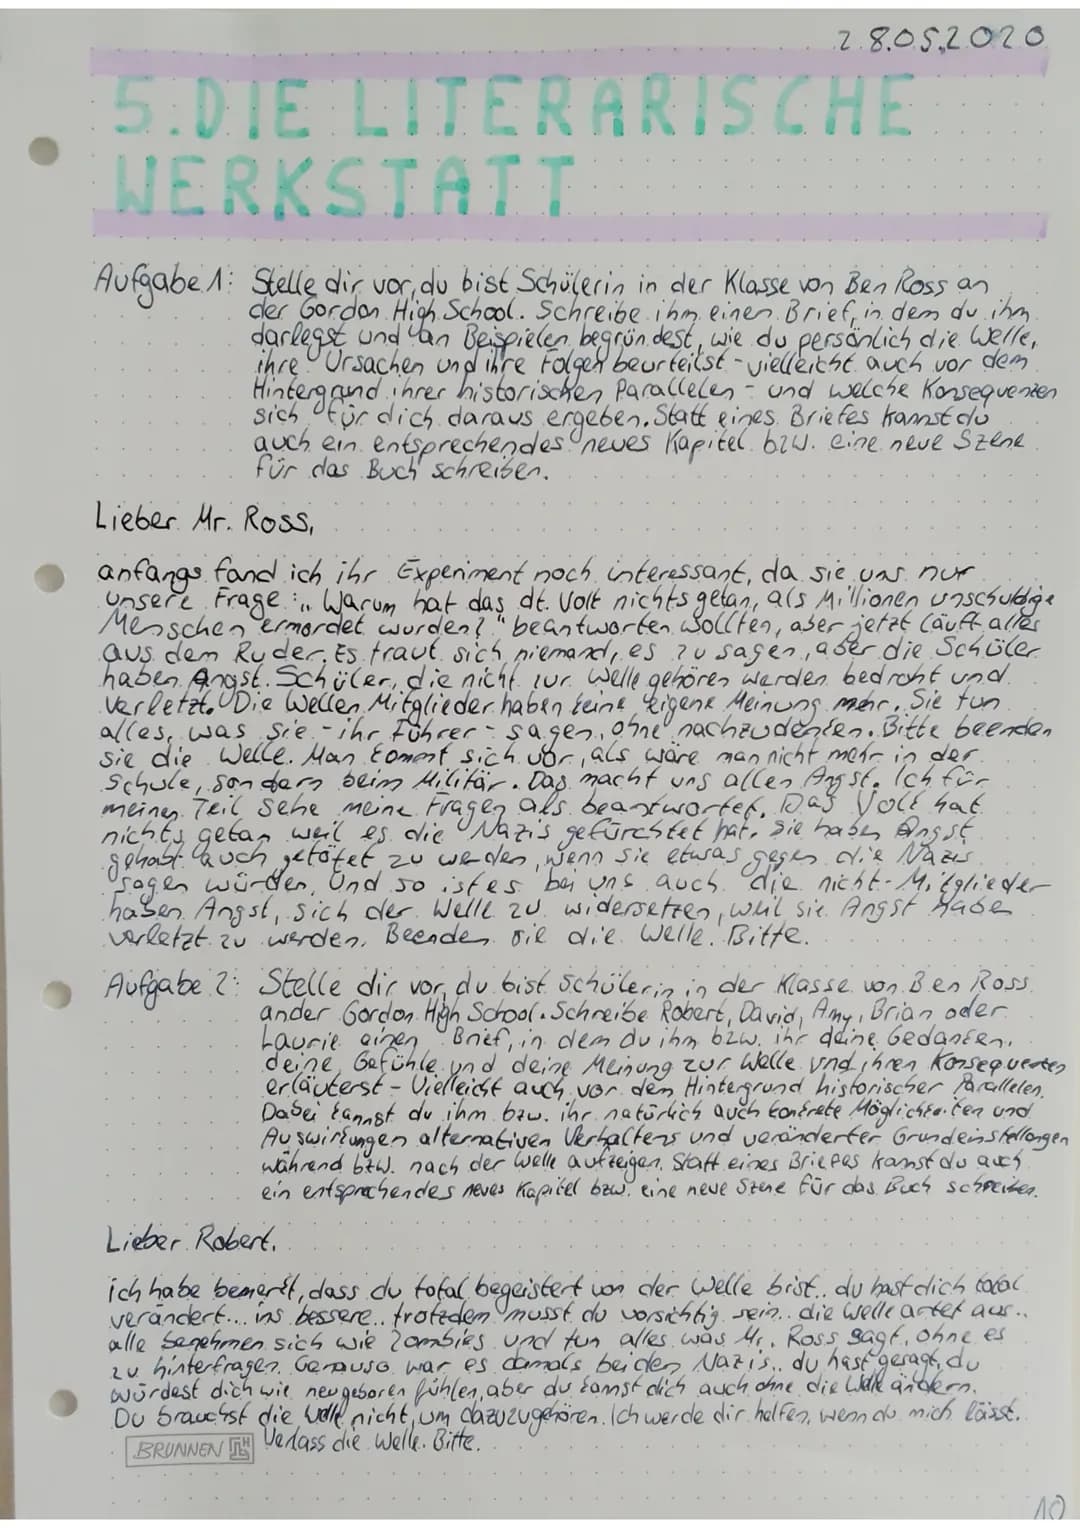 28.05.2020
5. DIE LITERARISCHE
WERKSTATT
Aufgabe 1: Stelle dir vor, du bist Schülerin in der Klasse von Ben Ross an
der Gordon High School. Schreibe ihm einen Brief, in dem du ihm
darlegst und an Beispielen begründest, wie du persönlich die Welle,
ihre Ursachen und ihre Folgen beurteilst - vielleicht auch vor dem
Hintergrund ihrer historischen Parallelen - und welche Konsequenzen
sich für dich daraus ergeben. Statt eines Briefes kannst du
auch ein entsprechendes neues Kapitel bzw. eine neue Szene
für das Buch schreiben.
Lieber Mr. Ross,
anfangs fand ich ihr Experiment noch interessant, da sie uns nur
unsere Frage: „Warum hat das dt. Volk nichts getan, als Millionen unschuldige
Menschen ermordet wurden?" beantworten wollten, aber jetzt läuft alles
aus dem Ruder. Es traut sich niemand, es zu sagen, aber die Schüler
haben Angst. Schüler, die nicht zur Welle gehören werden bedroht und
verletzt. Die Wellen Mitglieder haben keine eigene Meinung mehr. Sie tun
alles, was sie - ihr Führer - sagen, ohne nachzudenken. Bitte beenden
sie die Welle. Man kommt sich vor, als wäre man nicht mehr in der
Schule, sondern beim Militär. Das macht uns allen Angst. Ich für
meinen Teil sehe meine Fragen als beantwortet. Das Volk hat
nichts getan weil es die Nazis gefürchtet hat. Sie haben Angst
gehabt auch getötet zu werden, wenn sie etwas gegen die Nazis
sagen würden. Und so ist es bei uns auch die nicht-Mitglieder
haben Angst, sich der Welle zu widersetzen, weil sie Angst haben
verletzt zu werden. Beenden sie die Welle. Bitte.
Aufgabe 2: Stelle dir vor, du bist Schülerin in der Klasse von Ben Ross
an der Gordon High School. Schreibe Robert, David, Amy, Brian oder
Laurie einen Brief, in dem du ihm bzw. ihr deine Gedanken,
deine Gefühle und deine Meinung zur Welle und ihren Konsequenzen
erläuterst - Vielleicht auch vor dem Hintergrund historischer Parallelen.
Dabei kannst du ihm bzw. ihr natürlich auch konkrete Möglichkeiten und
Auswirkungen alternativen Verhaltens und veränderter Grundeinstellungen
während bzw. nach der Welle aufzeigen. Statt eines Briefes kannst du auch
ein entsprechendes neues Kapitel bzw. eine neue Szene für das Buch schreiben.
Lieber Robert.
ich habe bemerkt, dass du total begeistert von der Welle bist.. du hast dich total
verändert... ins bessere.. trotzdem musst du vorsichtig sein.. die Welle artet aus..
alle benehmen sich wie Zombies und tun alles was Mr. Ross sagt, ohne es
zu hinterfragen. Genauso war es damals bei den Nazis.. du hast gesagt, du
würdest dich wie neugeboren fühlen, aber du kannst dich auch ohne die Welle ändern.
Du brauchst die Welle nicht, um dazuzugehören. Ich werde dir helfen, wenn du mich lässt.
Verlass die Welle. Bitte.
BRUNNEN
10